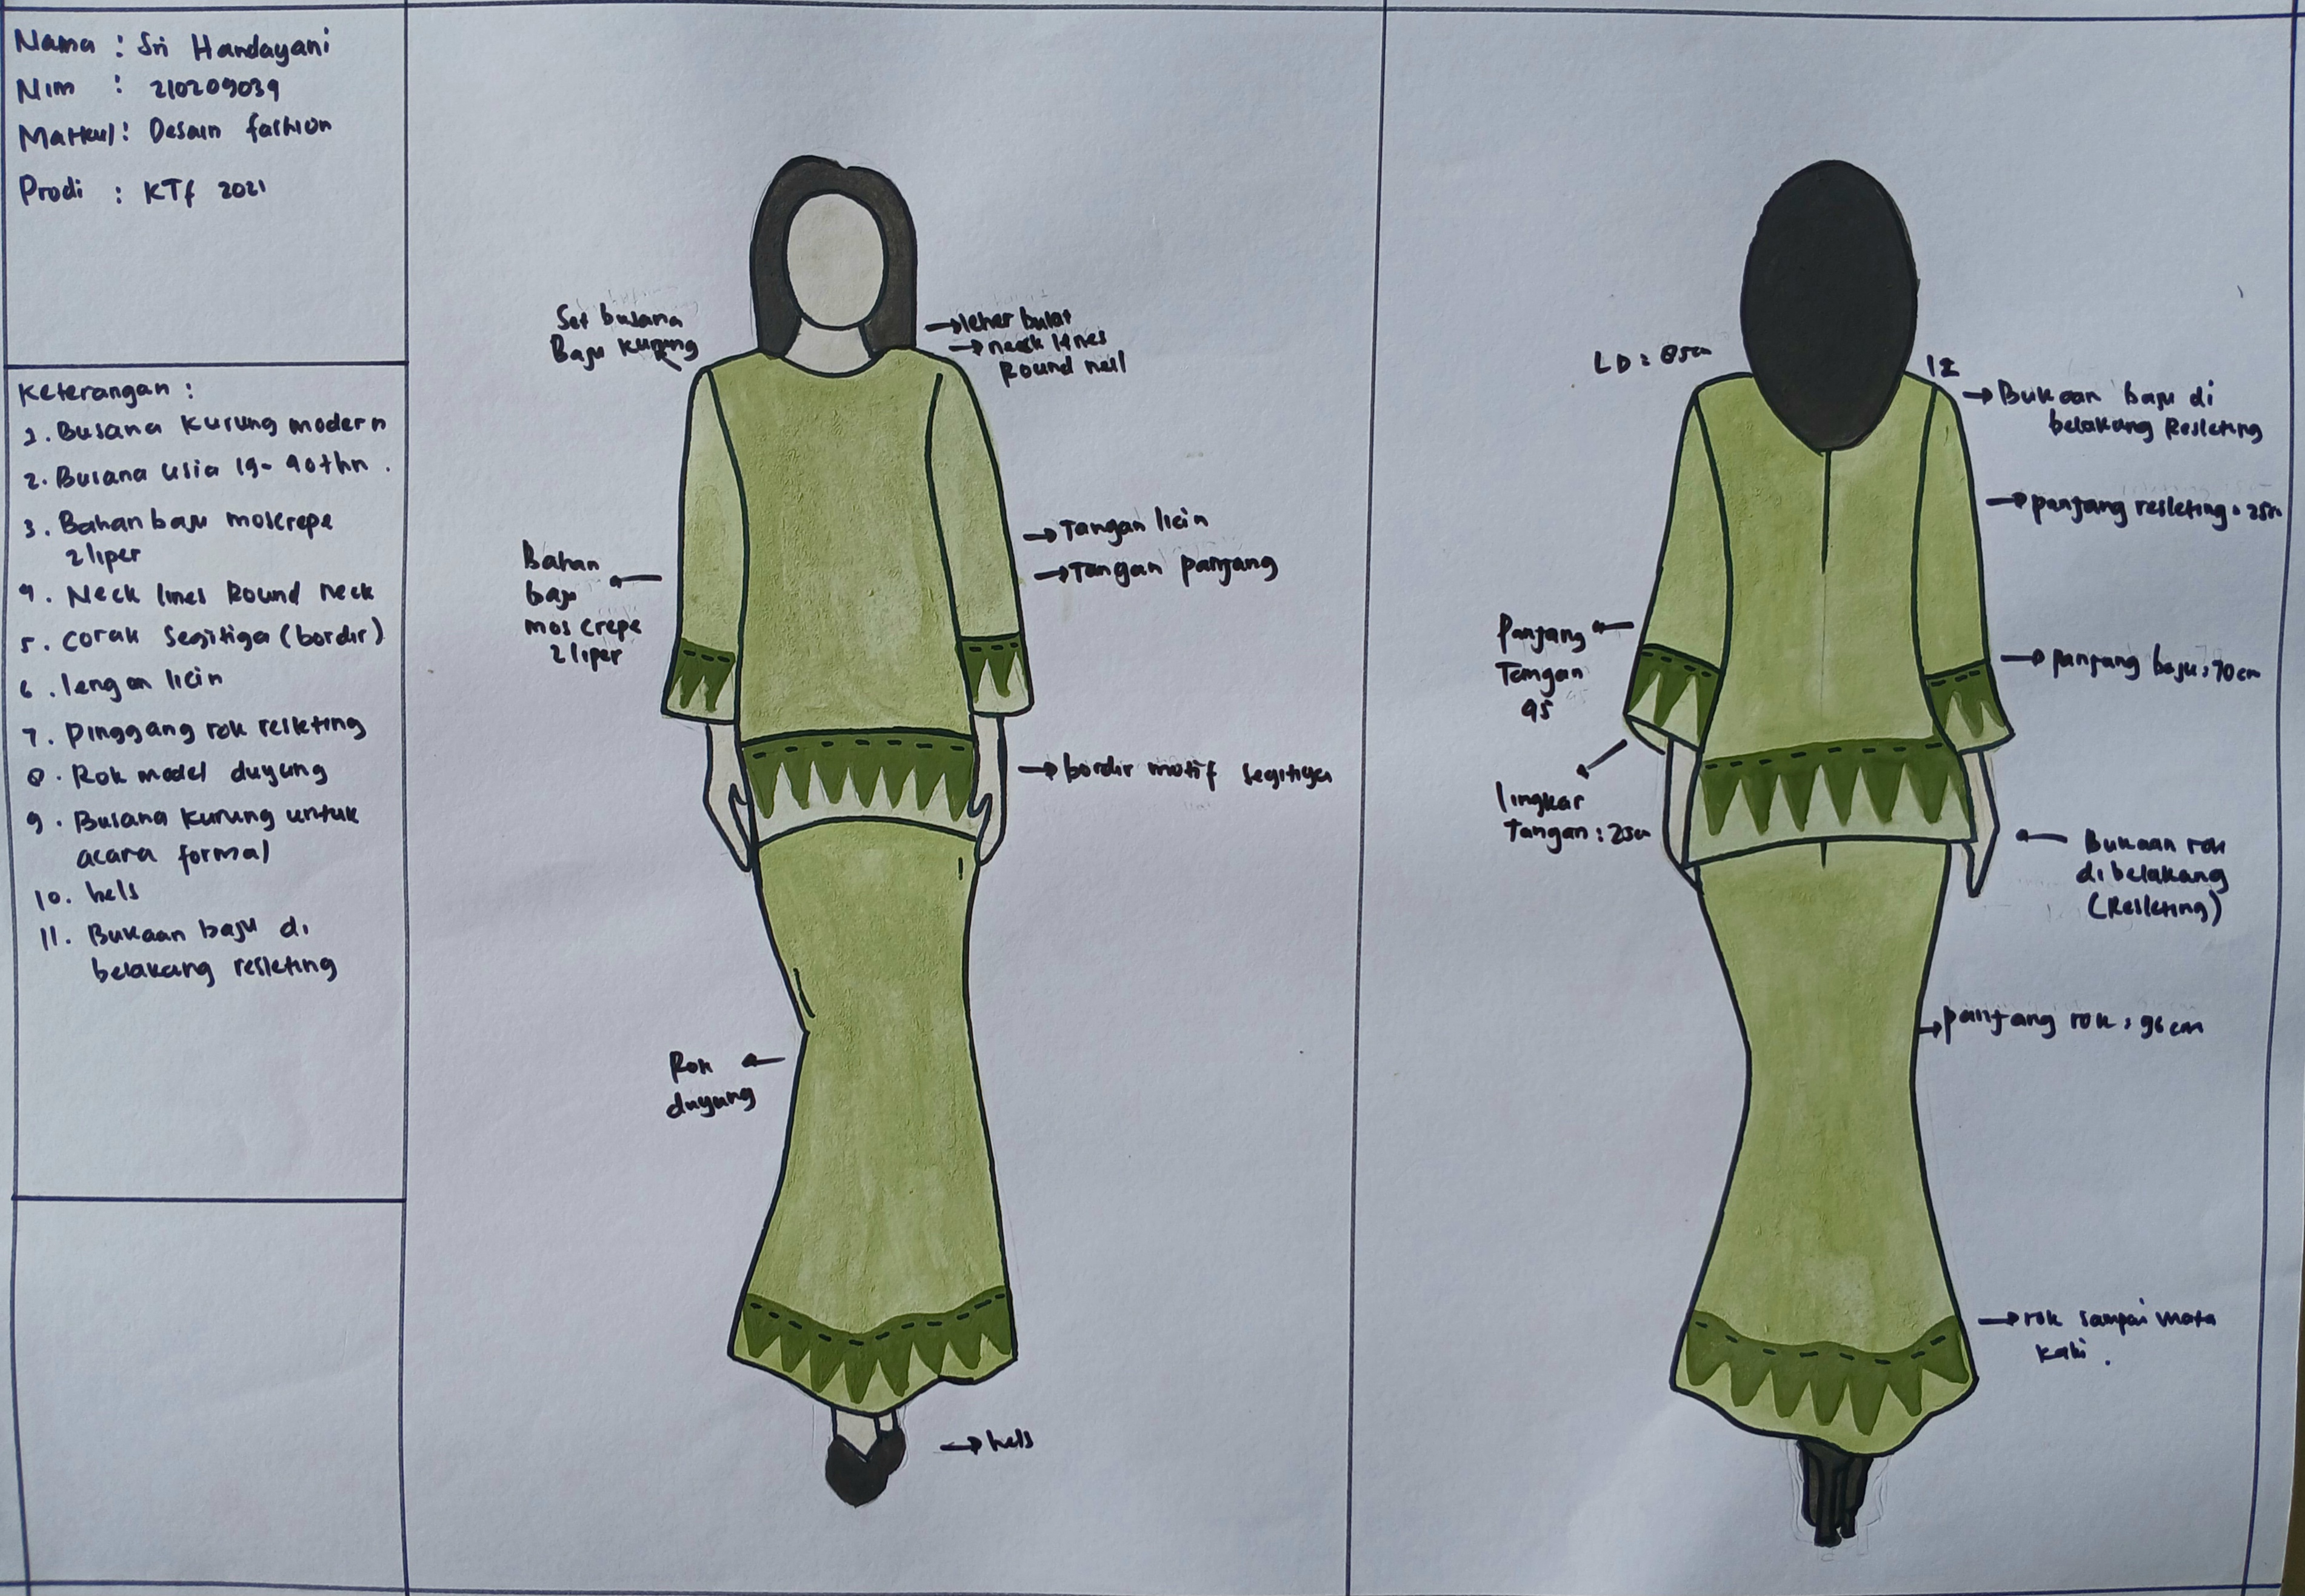 Nama : Sri Handayani
Nim : 210209039
Matkul : Desain fashion
Prodi : KTf 2021
Keterangan :
1. Busana Kurung modern
2. Busana usia 19-40thn .
3. Bahan baju moscrepe
2 liper
4. Neck lines Round neck
5. corak Segitiga (bordir)
6. lengan licin
7. pinggang rok resleting
8. Rok model duyung
9. Busana kurung untuk
acara formal
10. hels
11. Bukaan baju di
belakang resleting
Set busana
Baju kurung
leher bulat
neck lines
Round
Bahan
baju
moscrepe
2 liper
Tangan licin
Tangan panjang
bordir motif segitiga
Rok
duyung
hels
LD : 85cm
12
Bukaan baju di
belakang Resleting
panjang resleting : 25cm
Panjang
Tangan
45
panjang baju : 70cm
lingkar
tangan : 25cm
Bukaan rok
dibelakang
(Resleting)
panjang rok : 96 cm
rok sampai mata
kaki .